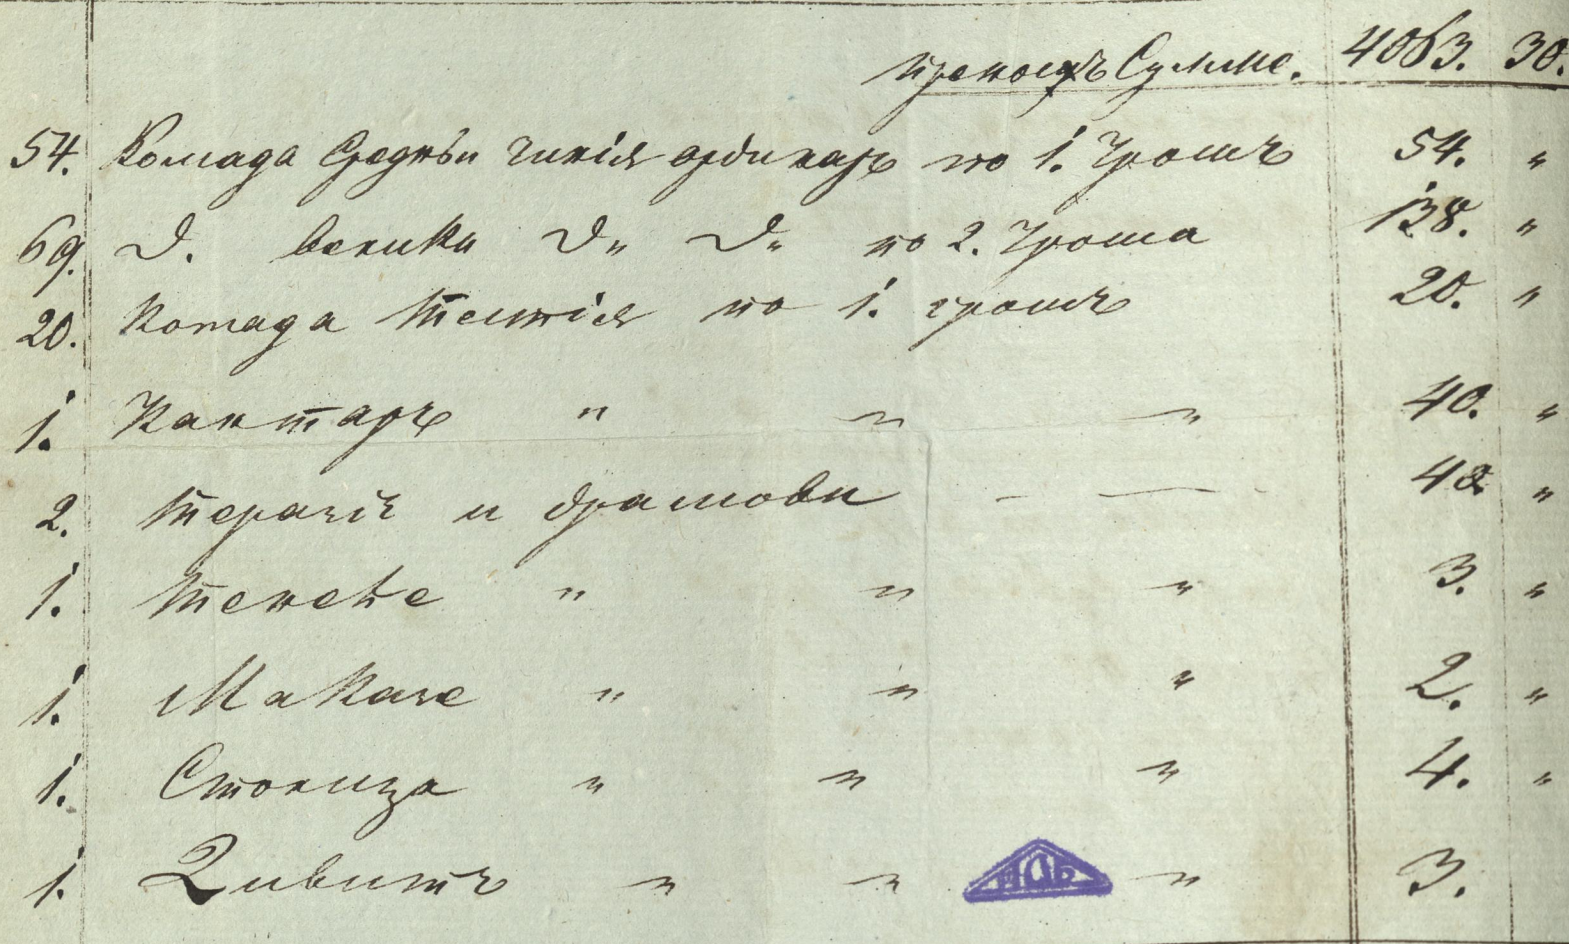 преносъ Сумме. 4063. 30.
54. Комада Средньи чинія ордикаръ по 1. Грошъ 54. "
69. D. велики D" D" по 2. Гроша 138. "
20. Комада Тепсія по 1. грошъ 20. "
1. Кантаръ " " " 40. "
2. Теразіи и драмови - — - 40. "
1. Тенеће " " " 3. "
1. Маказе " " " 2. "
1. Столица " " " 4. "
1. Дивитъ " " " 3.